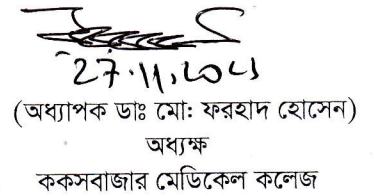 27.11.2025
(অধ্যাপক ডাঃ মো: ফরহাদ হোসেন)
অধ্যক্ষ
ককসবাজার মেডিকেল কলেজ